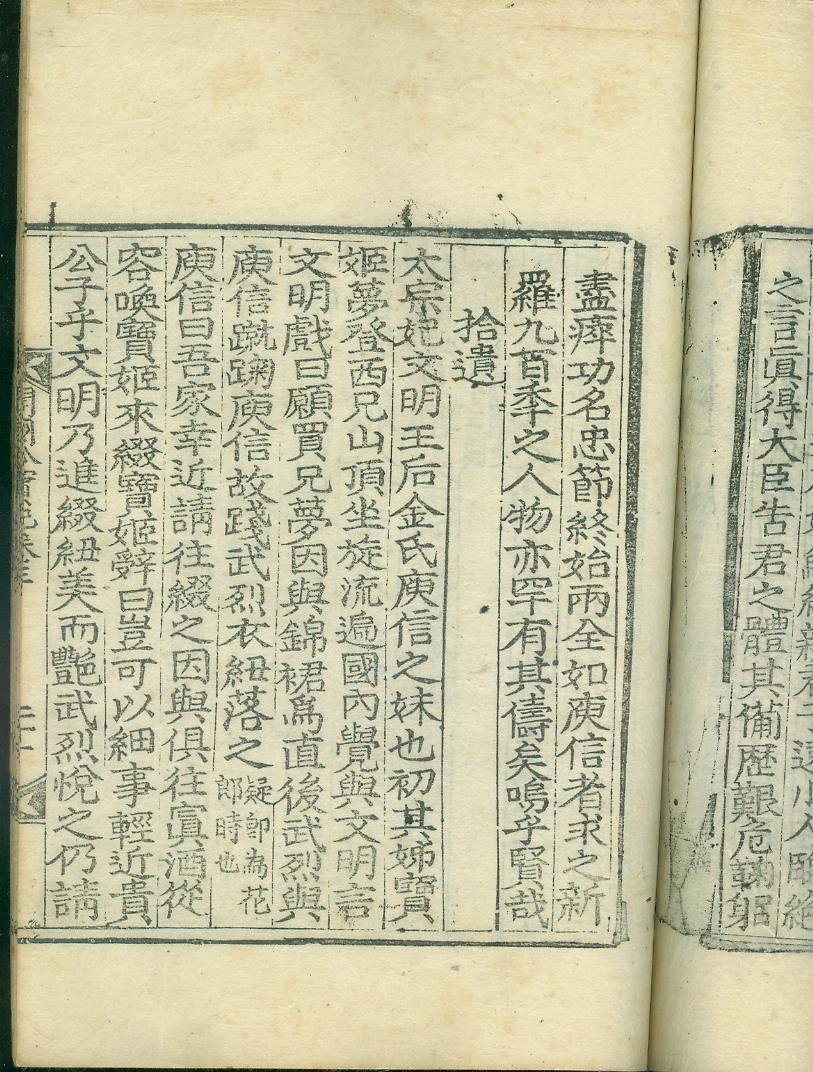 之言眞得大臣告君之體其備歷艱危鞠躬
盡瘁功名忠節終始兩全如庾信者求之新
羅九百季之人物亦罕有其儔矣嗚乎賢哉
拾遺
太宗妃文明王后金氏庾信之妹也初其姊寶
姬夢登西兄山頂坐旋流遍國內覺與文明言
文明戲曰願買兄夢因與錦裙爲直後武烈與
庾信蹴踘庾信故踐武烈衣紐落之
疑卽為花
郎時也
庾信曰吾家幸近請往綴之因與俱往寘酒從
容喚寶姬來綴寶姬辭曰豈可以細事輕近貴
公子乎文明乃進綴紐美而艶武烈悅之仍請